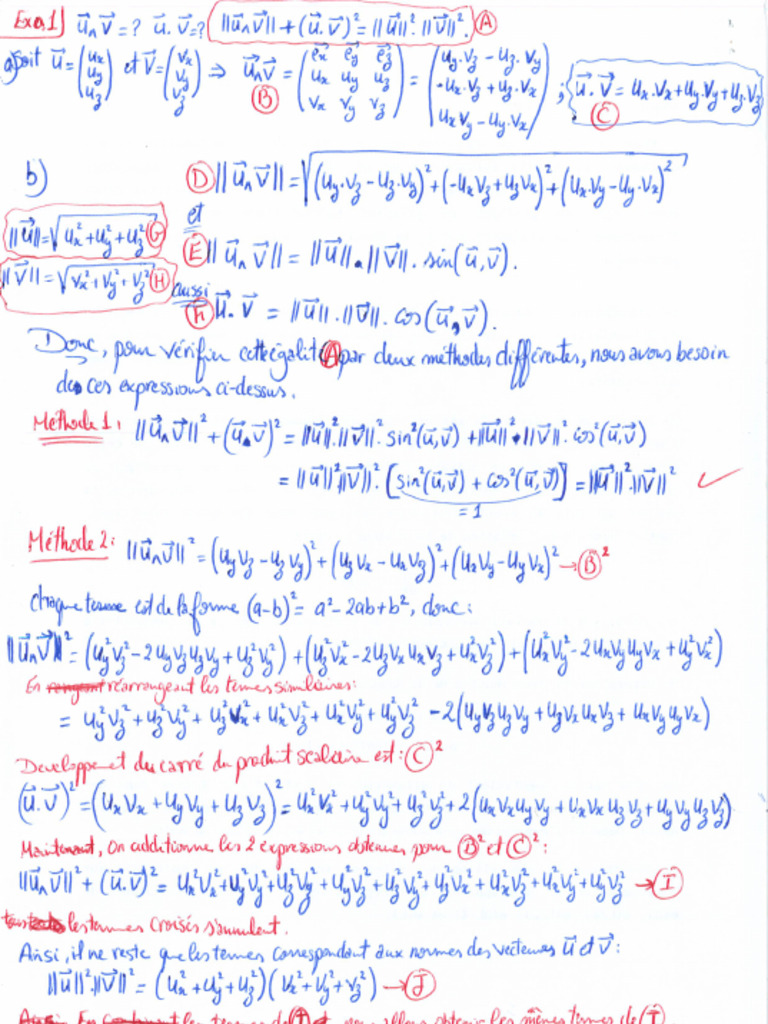 Exo1) u⃗∧v⃗ = ? u⃗.v⃗ = ? ||u⃗∧v⃗|| + (u⃗.v⃗)² = ||u⃗||².||v⃗||². (A)
a) Soit u⃗ = (ux uy uz) et v⃗ = (vx vy vz) ⇒ u⃗∧v⃗ (B) = (e⃗x e⃗y e⃗z ux uy uz vx vy vz) = (uy.vz - uz.vy -ux.vz + uz.vx ux vy - uy.vx) ; u⃗.v⃗ = ux.vx + uy.vy + uz.vz (C)
b) (D) ||u⃗∧v⃗|| = √(uy.vz - uz.vy)² + (-ux vz + uz vx)² + (ux.vy - uy.vx)²
et
||u⃗|| = √ux² + uy² + uz² (G)
(E) ||u⃗∧v⃗|| = ||u⃗||.||v⃗||. sin(u⃗,v⃗).
||v⃗|| = √vx² + vy² + vz² (H)
aussi
(F) u⃗.v⃗ = ||u⃗||.||v⃗||. cos(u⃗,v⃗).
Donc, pour vérifier cette égalité (A) par deux méthodes différentes, nous avons besoin
de ces expressions ci-dessus.
Méthode 1: ||u⃗∧v⃗||² + (u⃗.v⃗)² = ||u⃗||².||v⃗||². sin²(u⃗,v⃗) + ||u⃗||².||v⃗||². cos²(u⃗,v⃗)
= ||u⃗||².||v⃗||². [sin²(u⃗,v⃗) + cos²(u⃗,v⃗)] = ||u⃗||².||v⃗||² ✓
= 1
Méthode 2: ||u⃗∧v⃗||² = (uy vz - uz vy)² + (uz vx - ux vz)² + (ux vy - uy vx)² → (B)²
chaque terme est de la forme (a-b)² = a² - 2ab + b², donc:
||u⃗∧v⃗||² = (uy² vz² - 2 uy vz uz vy + uz² vy²) + (uz² vx² - 2 uz vx ux vz + ux² vz²) + (ux² vy² - 2 ux vy uy vx + uy² vx²)
En réarrangeant les termes similaires:
= uy² vz² + uz² vy² + uz² vx² + ux² vz² + ux² vy² + uy² vz² - 2(uy vz uz vy + uz vx ux vz + ux vy uy vx)
Developpement du carré du produit scalaire est: (C)²
(u⃗.v⃗)² = (ux vx + uy vy + uz vz)² = ux² vx² + uy² vy² + uz² vz² + 2(ux vx uy vy + ux vx uz vz + uy vy uz vz)
Maintenant, on additionne les 2 expressions obtenues pour (B)² et (C)²:
||u⃗∧v⃗||² + (u⃗.v⃗)² = ux² vx² + uy² vy² + uz² vz² + uy² vz² + uz² vy² + uz² vx² + ux² vz² + ux² vy² + uy² vz² → (I)
les termes croisés s'annulent.
Ainsi, il ne reste que les termes correspondant aux normes des vecteurs u⃗ et v⃗:
||u⃗||².||v⃗||² = (ux² + uy² + uz²)(vx² + vy² + vz²) → (J)